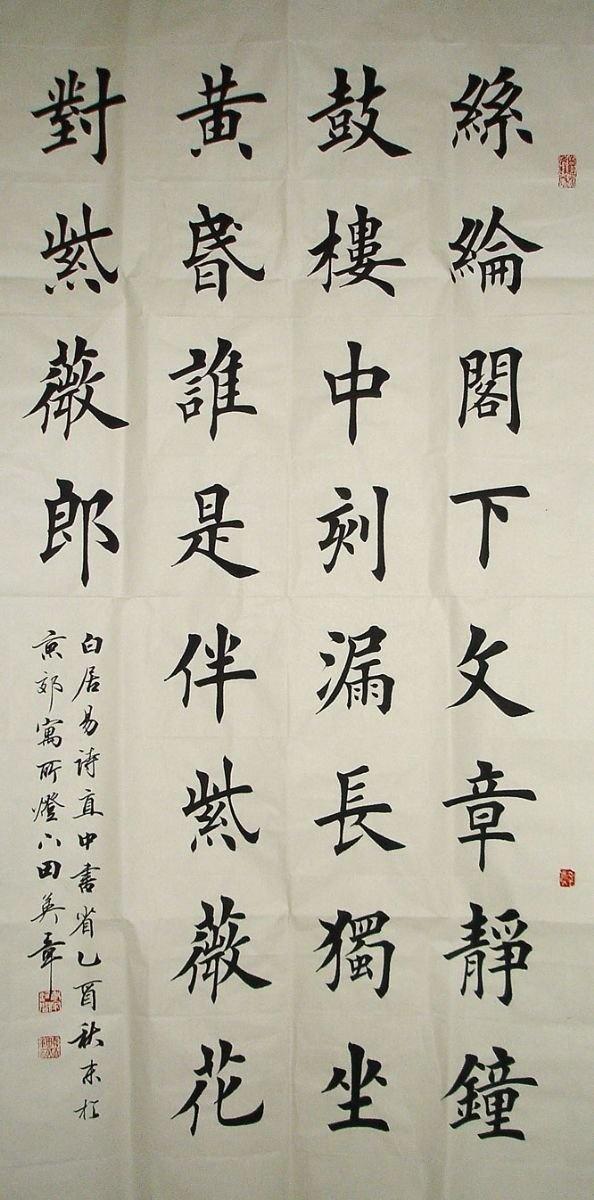 絲綸閣下文章靜鐘
鼓樓中刻漏長獨坐
黄昏誰是伴紫薇花
對紫薇郎
白居易詩直中書省乙酉秋末於
京郊寓所燈下田英章